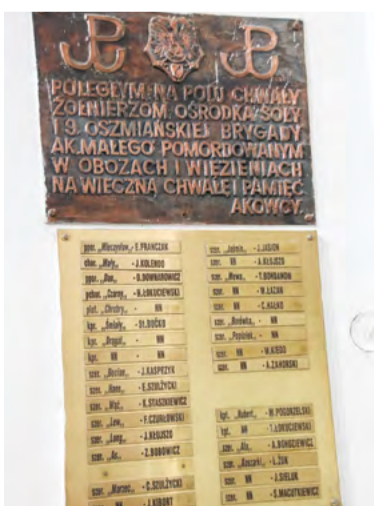 POLEGŁYM NA POLU CHWAŁY
ŻOŁNIERZOM OŚRODKA SOŁY
I 9. OSZMIAŃSKIEJ BRYGADY
AK. MAŁEGO POMORDOWANYM
W OBOZACH I WIĘZIENIACH
NA WIECZNĄ CHWAŁĘ I PAMIĘĆ
AKOWCY
ppor. „Mieczysław„ - E. FRANCZAK
chor. „Mały„ - J. KOLENDO
ppor. „Don„ - D. DOWNAROWICZ
pchor. „Czarny„ - H. ŁOKUCIEWSKI
plut. „Chrobry„ - NN
kpr. „Śmiały„ - ST. BOĆKO
kpr. „Drągal„ - NN
kpr. NN - NN
szer. „Bocian„ - J. KASPRZYK
szer. - E. SZULŻYCKI
szer. „Wąż„ - K. STASZKIEWICZ
szer. „Lew„ - F. CZUNŁOWSKI
szer. „Long„ - J. KŁOJSZO
szer. „As„ - Z. BOBOWICZ
szer. „Marzec„ - C. SZULŻYCKI
NN - J. KIBORT
szer. „Jaśmin„ - J. JASION
szer. NN - A. KŁOJSZO
szer. „Mewa„ - T. BOHDANOW
szer. NN - W. ŁAZAN
szer. NN - C. HAŁKO
szer. „Mrówka„ - NN
szer. „Popiołek„ - NN
szer. NN - W. KIEDO
szer. NN - A. ZAHORSKI
kpt. „Hubert„ - M. POGORZELSKI
kpt. NN - T. ŁOKUCIEWSKI
szer. - A. BOHDZIEWICZ
szer. „Kaszarki„ - L. ŻUK
szer. NN - J. SIELUK
szer. NN - S. MACUTKIEWICZ